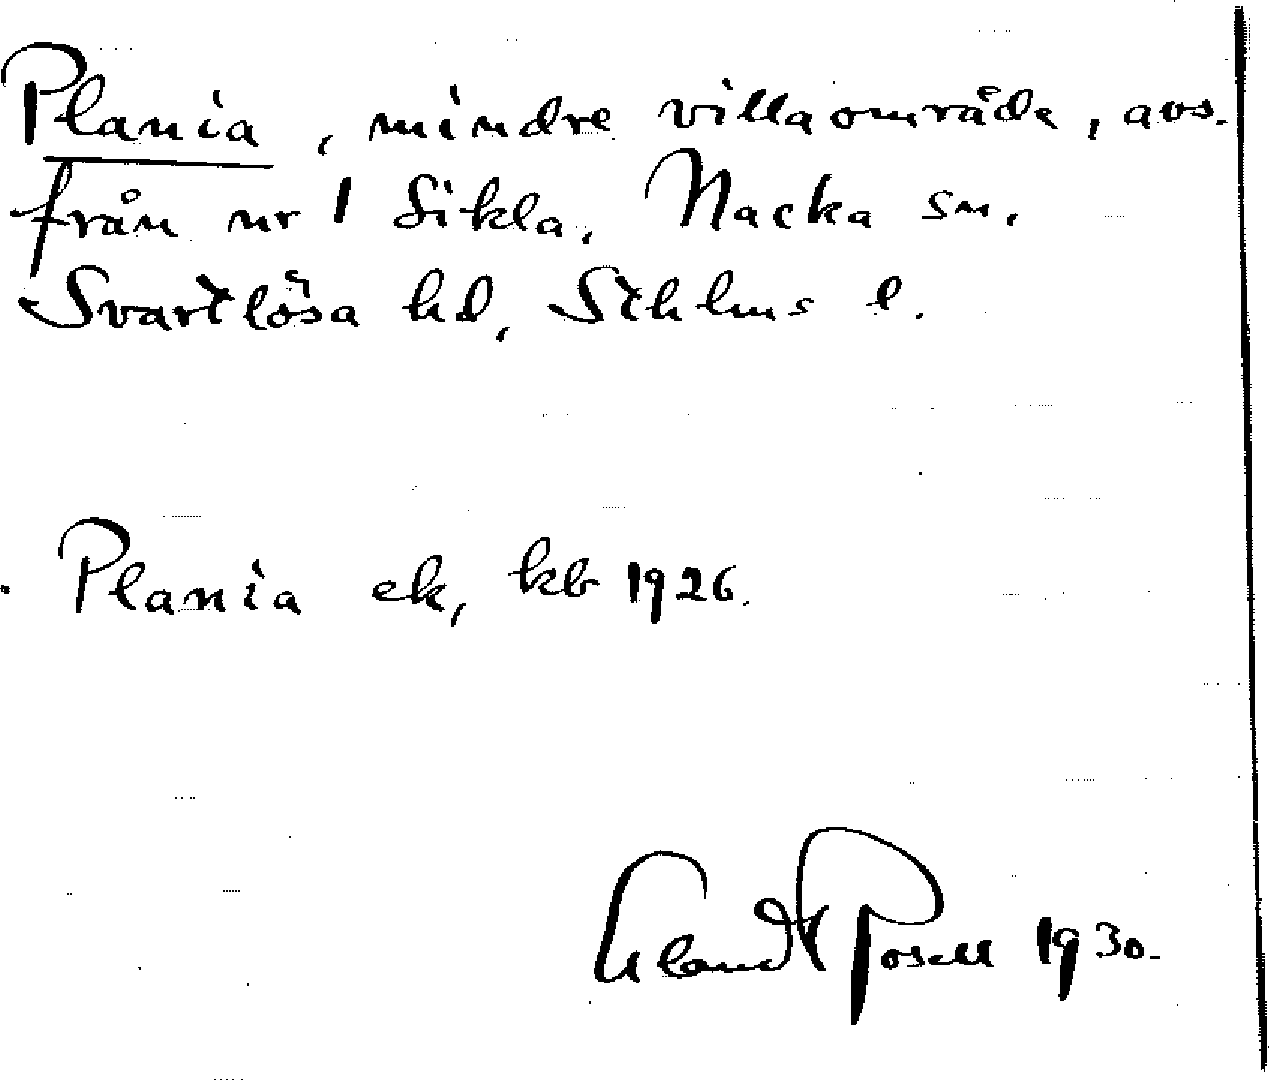 Plania, mindre villaområde, avs.
från nr 1 Sikla, Nacka sn,
Svartlösa hd, Sthlms l.
Plania ek, kb 1926.
Erland Rosell 1930.